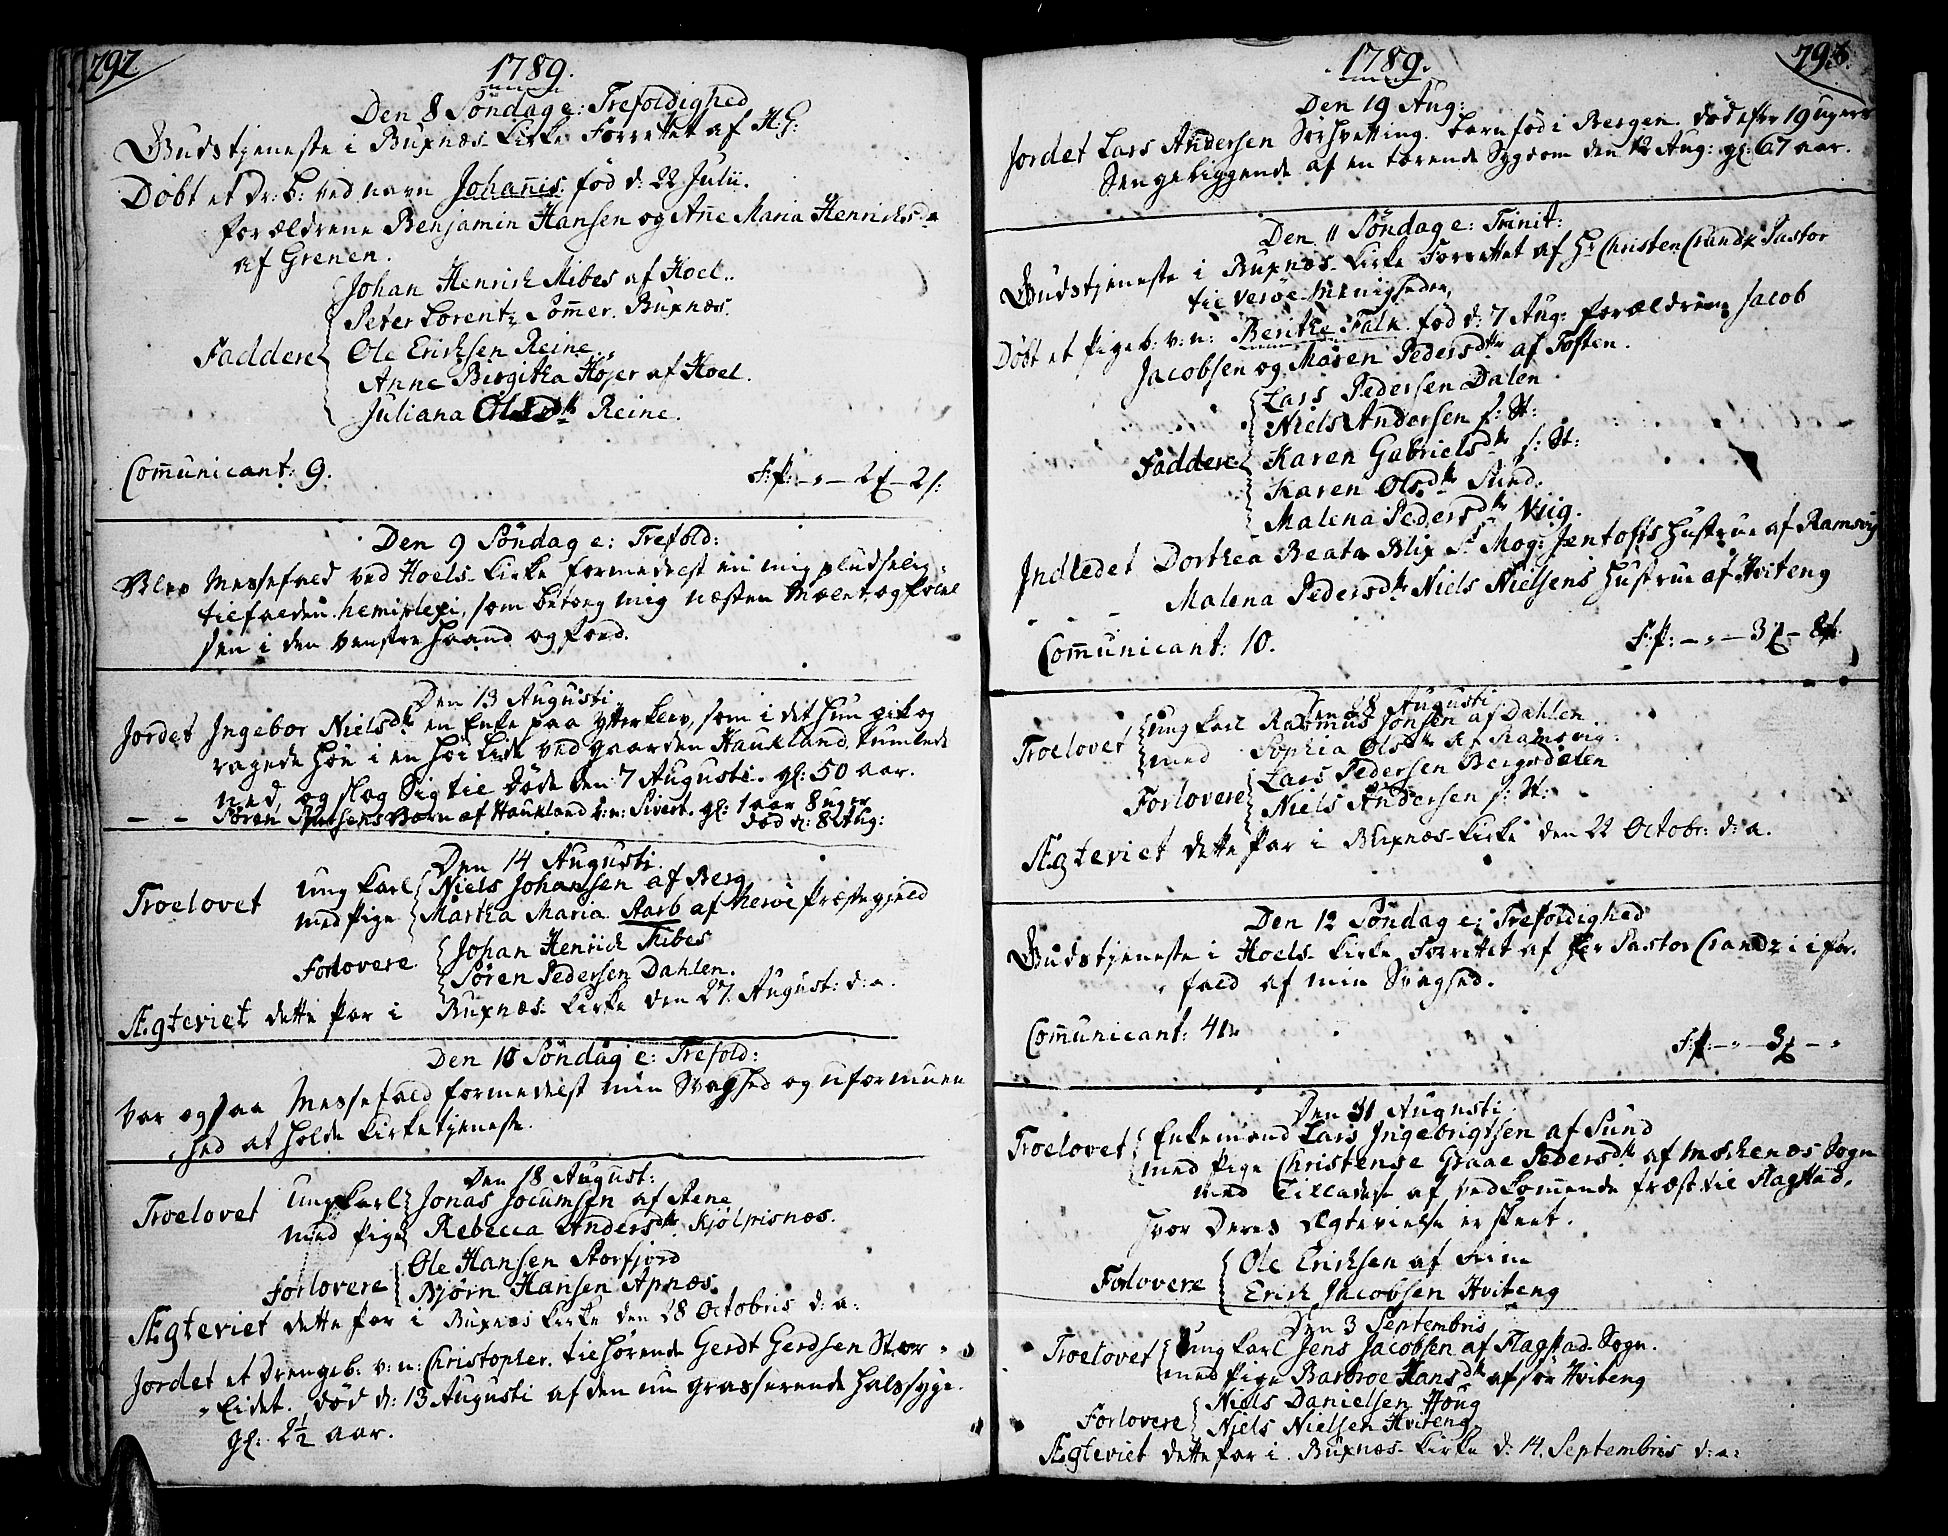 797.
1789.
Den 8 Söndag e: Trefoldighed
Gudstjeneste i Buxnæs Kirke Forrettet af H: G:
Döbt et Dr: b: ved navn Johan̄is. föd d: 22 Julii.
forældrene Benjamin Hansen og An̄e Maria Henrichsd
af Grenen.
Johan Henrich Mibes af Hoel.
Peter Lorentz Som̄er. Buxnæs.
Faddere Ole Erichsen Reine
Anne Birgitha Hojer af Hoel.
Juliana Olsdtr Reine.
Com̄unicant: 9.
F:p: - " - 2 - 2 s:
Den 9 Söndag e: Trefold:
Blev Messefald ved Hoels Kirke formedelst en mig pludselig
tilfalden hemiplexi, som betog mig næsten Mælet, og fölel
sen i den venstre Haand og Foed.
Den 13 Augusti
Jordet Ingebor Nielsdtr en Enke paa Ytterklev, som i det hun gik og
ragede höe i en höi Lide ved gaarden Haukland, tumlede
ned, og slog Sig til Döde den 7 Augusti. gl: 50 aar.
- - Sören Börn af Haukland v: n: Sivert. gl: 1 aar 8 uger
död d: 8 Aug:
Den 14 Augusti.
Troelovet ung Karl Niels Johansen af Berg
med Pige Martha Maria Aarb af Veröe Præstegjeld
Forlovere Johan Henrich Mibes
Sören Pedersen Dahlen.
Ægteviet dette Par i Buxnæs Kirke den 27. August: d: a.
Den 10 Söndag e: Trefold:
Var ogsaa Messefald formedelst min Svaghed og uformuen
hed at holde Kirketjeneste.
Den 18 August:
Troelovet Ungkarl Jonas Jocumsen af Stene
med Pige Rebecca Andersdtr Kjölpisnæs.
Forlovere Ole Hansen Storfjord
Bjørn Hansen Apnæs.
Ægteviet dette Par i Buxnæs Kirke den 28 Octobris d: a:
Jordet et Drengeb. v: n: Christopher. tilhörende Gerdt Gerdsen Stor
Eidet. död d: 13 Augusti af den nu grasserende Halssyge.
gl: 2½ aar.
798.
1789.
Den 19 Aug:
Jordet Lars Andersen Sörhvetting. barnföd i Bergen. död efter 19 ugers
Sengeliggende af en tærende Sygdom den 12 Aug: gl: 67 aar.
Den 11 Söndag e: Trinit:
Gudstjeneste i Buxnæs Kirke Forrettet af Hr Christen Crandtz Pastor
til Veröe Menigheder.
Döbt et Pigeb: v: n: Berithe Falk. föd d: 7 Aug: forældrene Jacob
Jacobsen og Maren Pedersdtr af Toften.
Lars Pedersen Dalen
Niels Andersen s: St:
Faddere Karen Gabrielsdtr s: St:
Karen Olsdtr Sund:
Malena Pedersdtr Viig.
Indledet Dorthea Beata Blix Sr Mog: Jentofts Hustrue af Ramsvig
- Malena Pedersdtr Niels Nielsens Hustrue af Hviteng
Com̄unicant: 10.
F: p: - " - 3 - 8
Den 28 Augusti
Troelovet ung Karl Rasmus Jonsen af Dahlen
med Sophia Olsdtr af Ramsvig.
Forlovere Lars Pedersen Bergsdalen
Niels Andersen s: St:
Ægteviet dette Par i Buxnæs Kirke den 22 Octobr: d: a.
Den 12 Söndag e: Trefoldighed
Gudstjeneste i Hoels Kirke Forrettet af Hr Pastor Crandz i ifor.
fald af min Svaghed.
Com̄unicant: 41.
F:p: - " - 3 - "
Den 31 Augusti
Troelovet Enkemand Lars Ingebrigtsen af Sund
med Pige Christense Graae Pedersdtr af Moskenæs Sogn
med Tilladelse af vedkom̄ende Præst til Flagstad,
hvor Deres Ægtevielse er skeet.
Forlovere Ole Erichsen af
Erich Jacobsen Hviteng
Den 3 Septembris
Troelovet ung Karl Jens Jacobsen af Flagstad Sogn.
med Pige Barbroe Hansdtr af sör Hviteng
Forlovere Niels Danielsen Houg
Niels Nielsen Hviteng.
Ægteviet dette Par i Buxnæs Kirke d: 14. Septembris d: a: